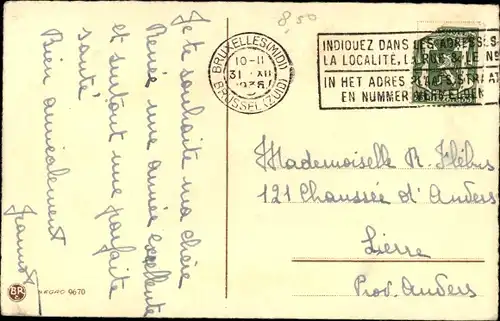 8,50
BRUXELLES (MIDI)
10-11
31 XII
BRUSSEL (ZUID)
INDIQUEZ DANS LES ADRESSES
LA LOCALITÉ, LA RUE & LE No
IN HET ADRES STRAAT
EN NUMMER VERMELDEN
Je te souhaite ma chère
Renée une année excellente
et surtout une parfaite
santé
Bien amicalement
Jeannot
Mademoiselle R. Flébus
121 Chaussée d'Anvers
Lierre
Prov. Anvers
BR
9670